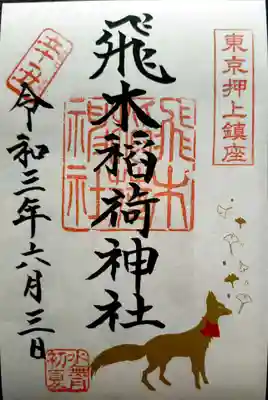 東京押上鎮座
飛木稲荷神社
飛木
稲荷
神社
令和三年六月三日
水無月
初夏